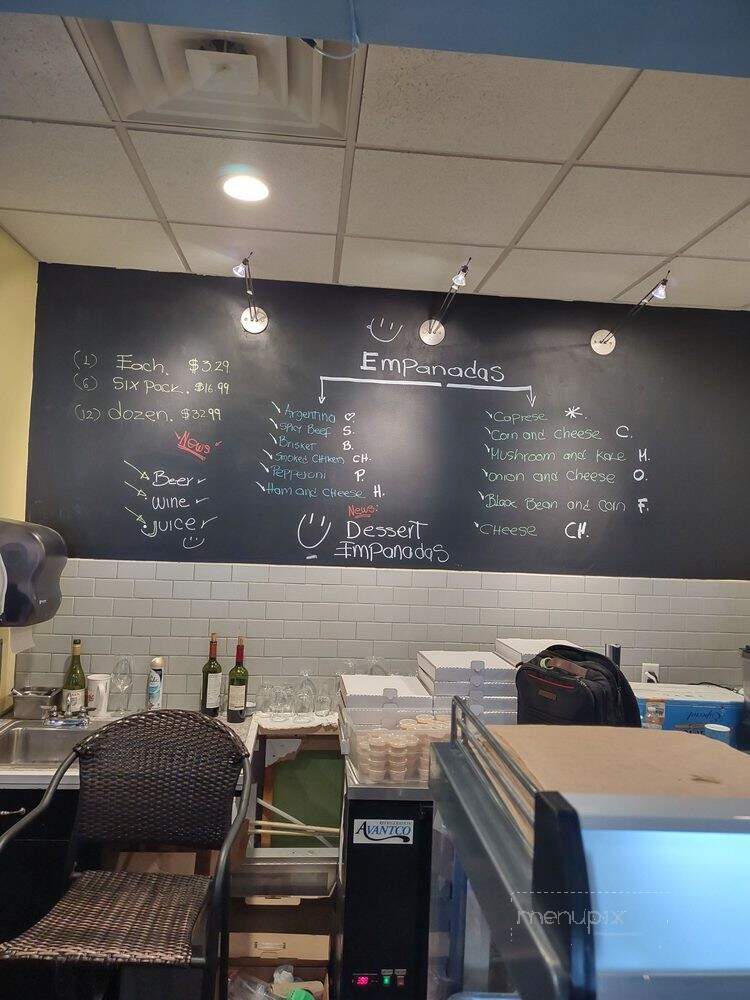 (1) Each. $3.29
(6) SIX Pack. $16.99
(12) dozen. $32.99
News
Beer
wine
juice
Empanadas
Argentina
Spicy Beef S.
Brisket B.
Smoked CHIKEN CH.
Pepperoni P.
Ham and CHeese H.
News:
Dessert
Empanadas
Caprese *.
Corn and CHeese C.
Mushroom and Kale M.
onion and CHeese O.
Black Bean and Corn F.
CHeese CH.
AVANTCO
menupix